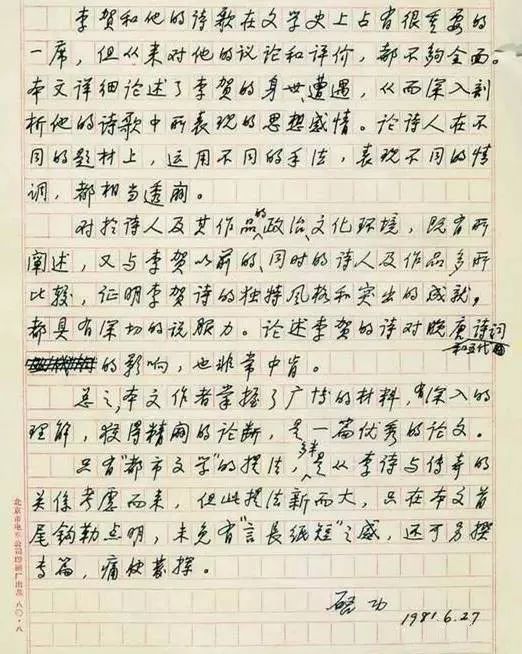 李贺和他的诗歌在文学史上占有很重要的
一席，但从来对他的议论和评价，都不够全面。
本文详细论述了李贺的身世、遭遇，从而深入剖
析他的诗歌中所表现的思想感情。论诗人在不
同的题材上，运用不同的手法，表现不同的情
调，都相当透阔。
对于诗人及其作品的政治、文化环境，既有所
阐述，又与李贺以前的、同时的诗人及作品多所
比较，证明李贺诗的独特风格和突出的成就，
都具有深切的说服力。论述李贺的诗对晚唐诗词
和五代
的影响，也非常中肯。
总之，本文作者掌握了广博的材料，有深入的
理解，获得精阔的论断，是一篇优秀的论文。
只有“都市文学”的提法，多半是从李诗与传奇的
关係考虑而来，但此提法新而大，只在本文首
尾钩勒点明，未免有“言長纸短”之感，还可另撰
专篇，痛快发挥。
启功
1981.6.27
北京市电车公司印刷厂出品 八〇·八